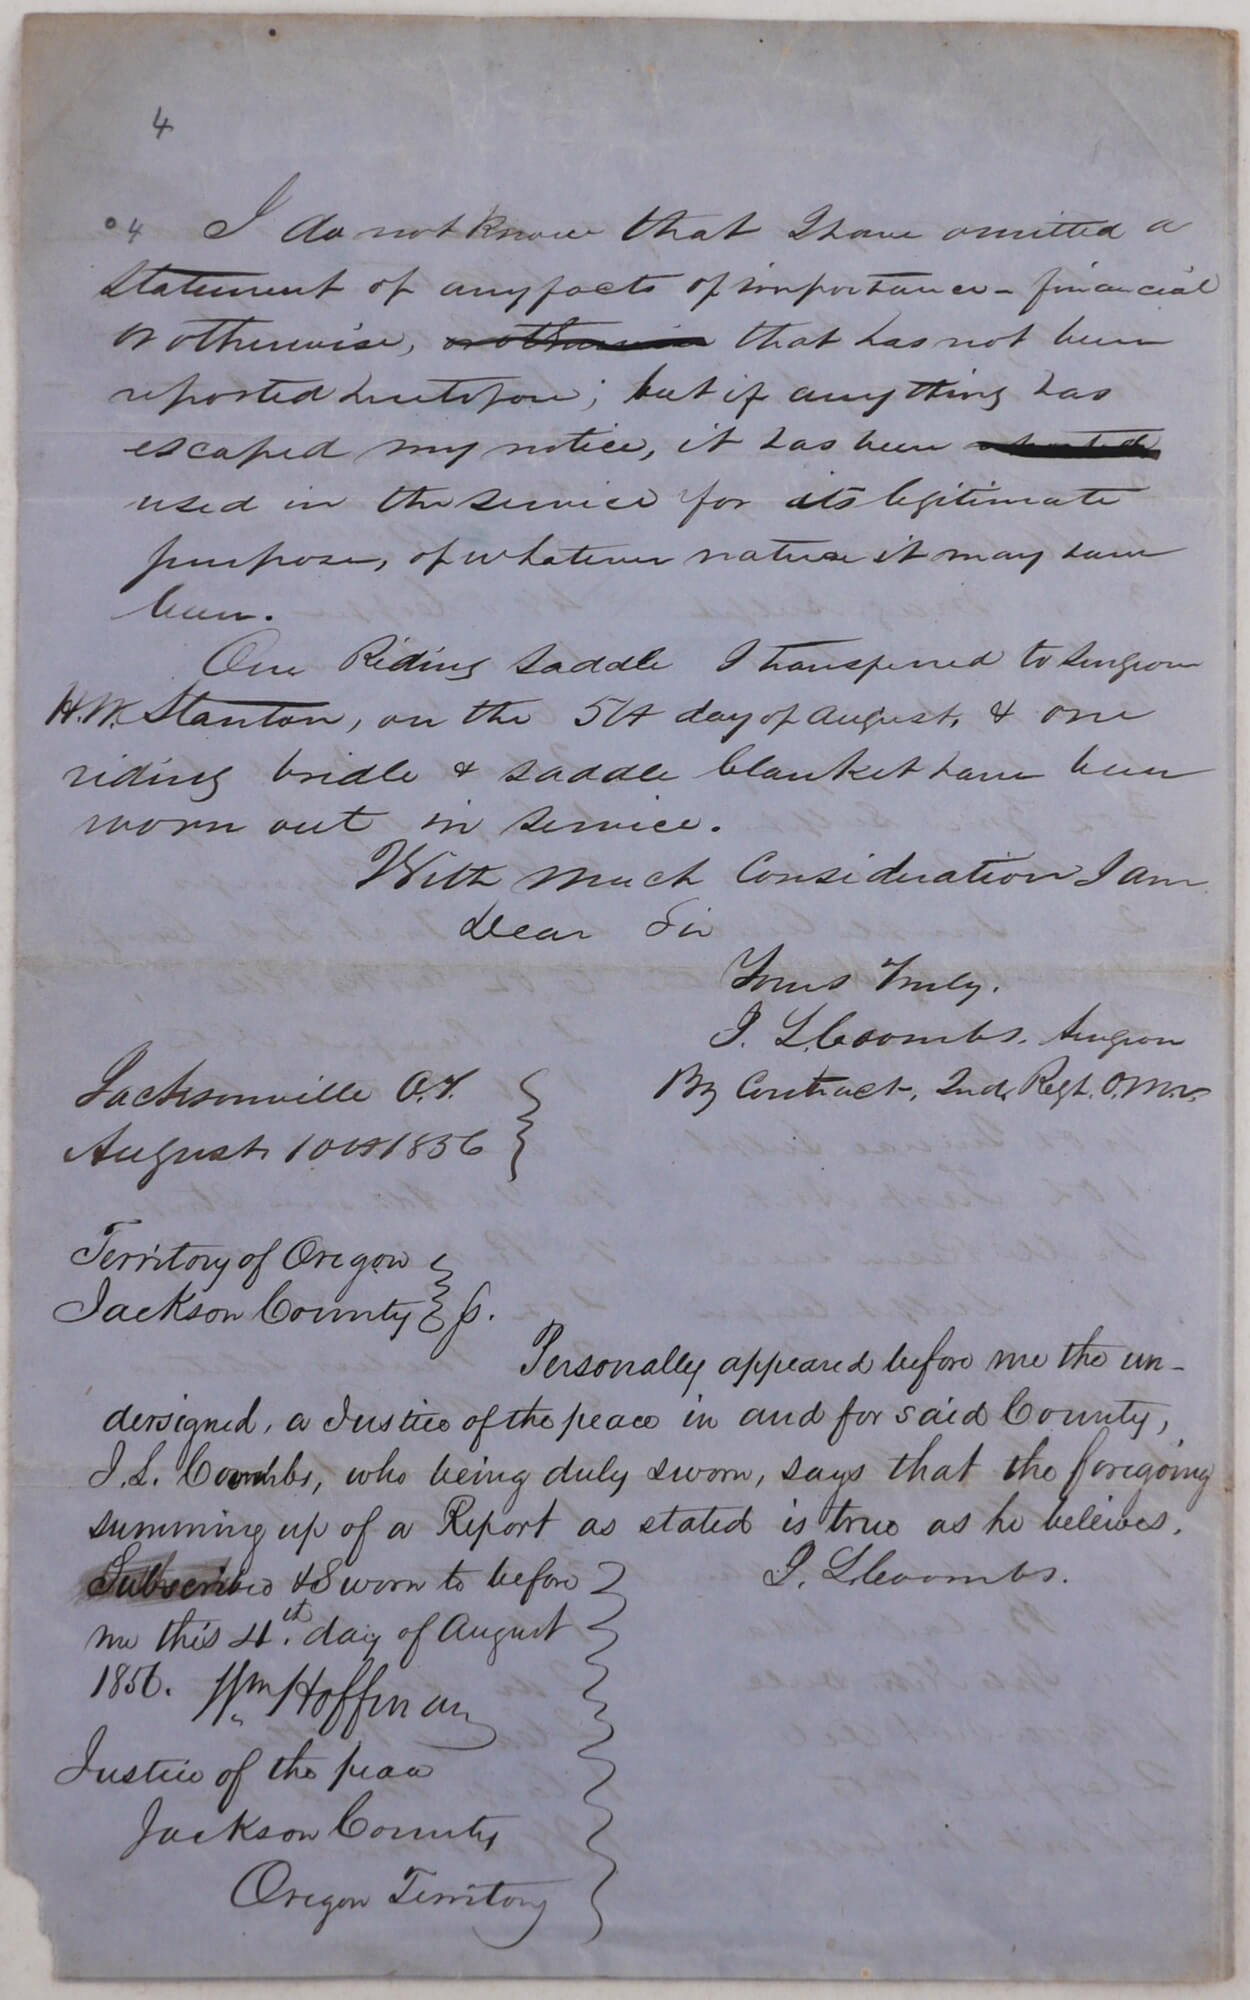 4
4 I do not know that I have omitted a
statement of any facts of importance - financial
or otherwise, or otherwise that has not been
reported heretofore; but if anything has
escaped my notice, it has been
used in the service for its legitimate
purpose, of whatever nature it may have
been.
One Riding saddle I transferred to Surgeon
H.W. Stanton, on the 5th day of August, & one
riding bridle & saddle blanket have been
worn out in service.
With much Consideration I am
Dear Sir
Yours Truly.
I. L. Coombs. Surgeon
By Contract, 2nd, Regt. O.M.V.
Jacksonville O.T.
August 10th 1856
Territory of Oregon
Jackson County ss.
Personally appeared before me the un-
dersigned, a Justice of the peace in and for said County,
I. L. Coombs, who being duly sworn, says that the foregoing
summing up of a Report as stated is true as he beleives.
I. L. Coombs.
Subscribed & Sworn to before
me this 11th. day of August
1856. Wm Hoffman
Justice of the peace
Jackson County
Oregon Territory